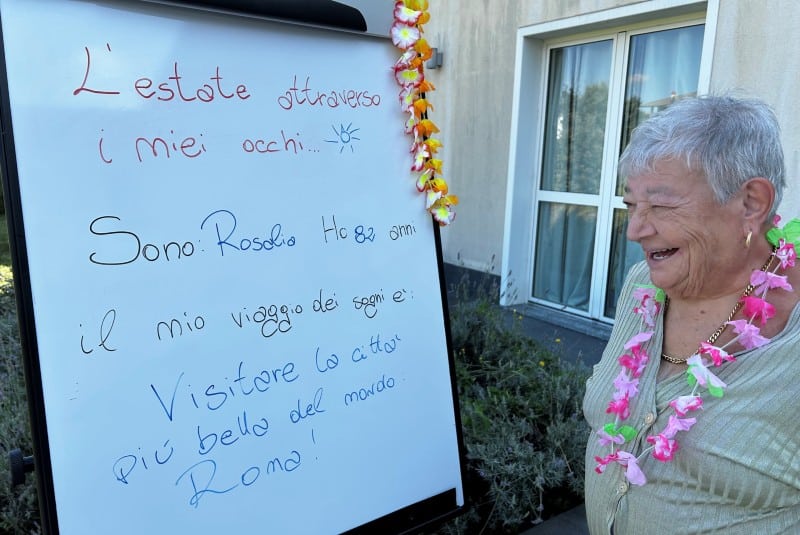 L'estate attraverso
i miei occhi...
Sono: Rosalia Ho 82 anni
il mio viaggio dei sogni è:
Visitare la città
più bella del mondo:
Roma!